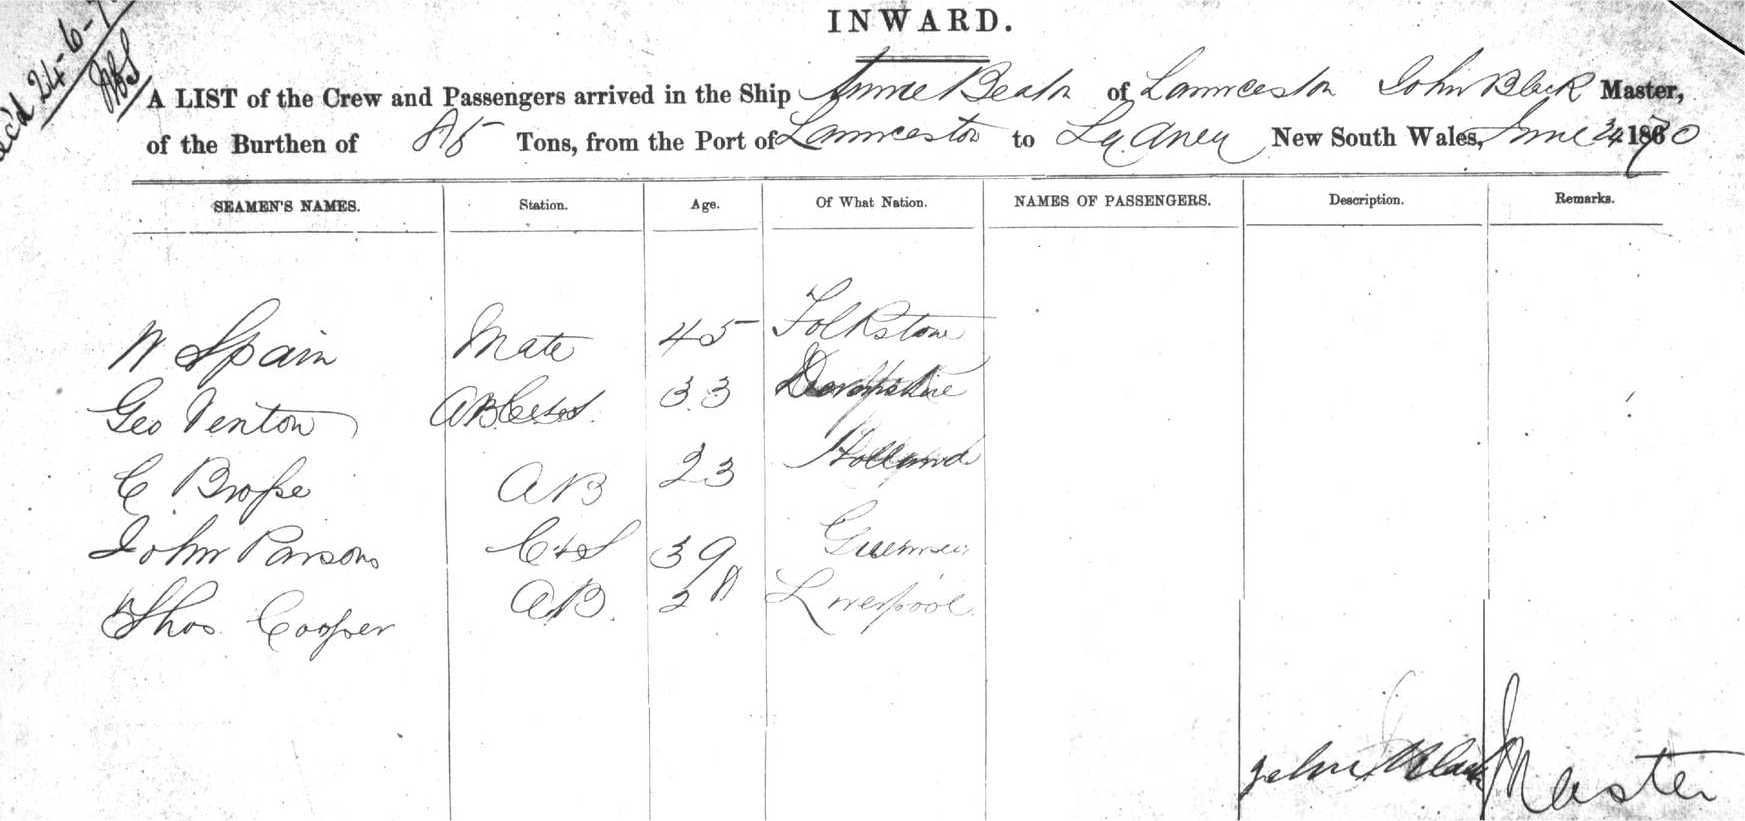 INWARD.
24-6-7
A LIST of the Crew and Passengers arrived in the Ship Annie Beaton of Launceston John Black Master,
of the Burthen of 85 Tons, from the Port of Launceston to Sydney New South Wales, June 24 1870
SEAMEN'S NAMES. Station. Age. Of What Nation. NAMES OF PASSENGERS. Description. Remarks.
W Spain Mate 45 Folkstone
Geo Venton AB 33 Devonshire
C AB 23 Holland
John Parsons C&S 39 Guernsey
Thos Cooper AB. 28 Liverpool
John Black Master